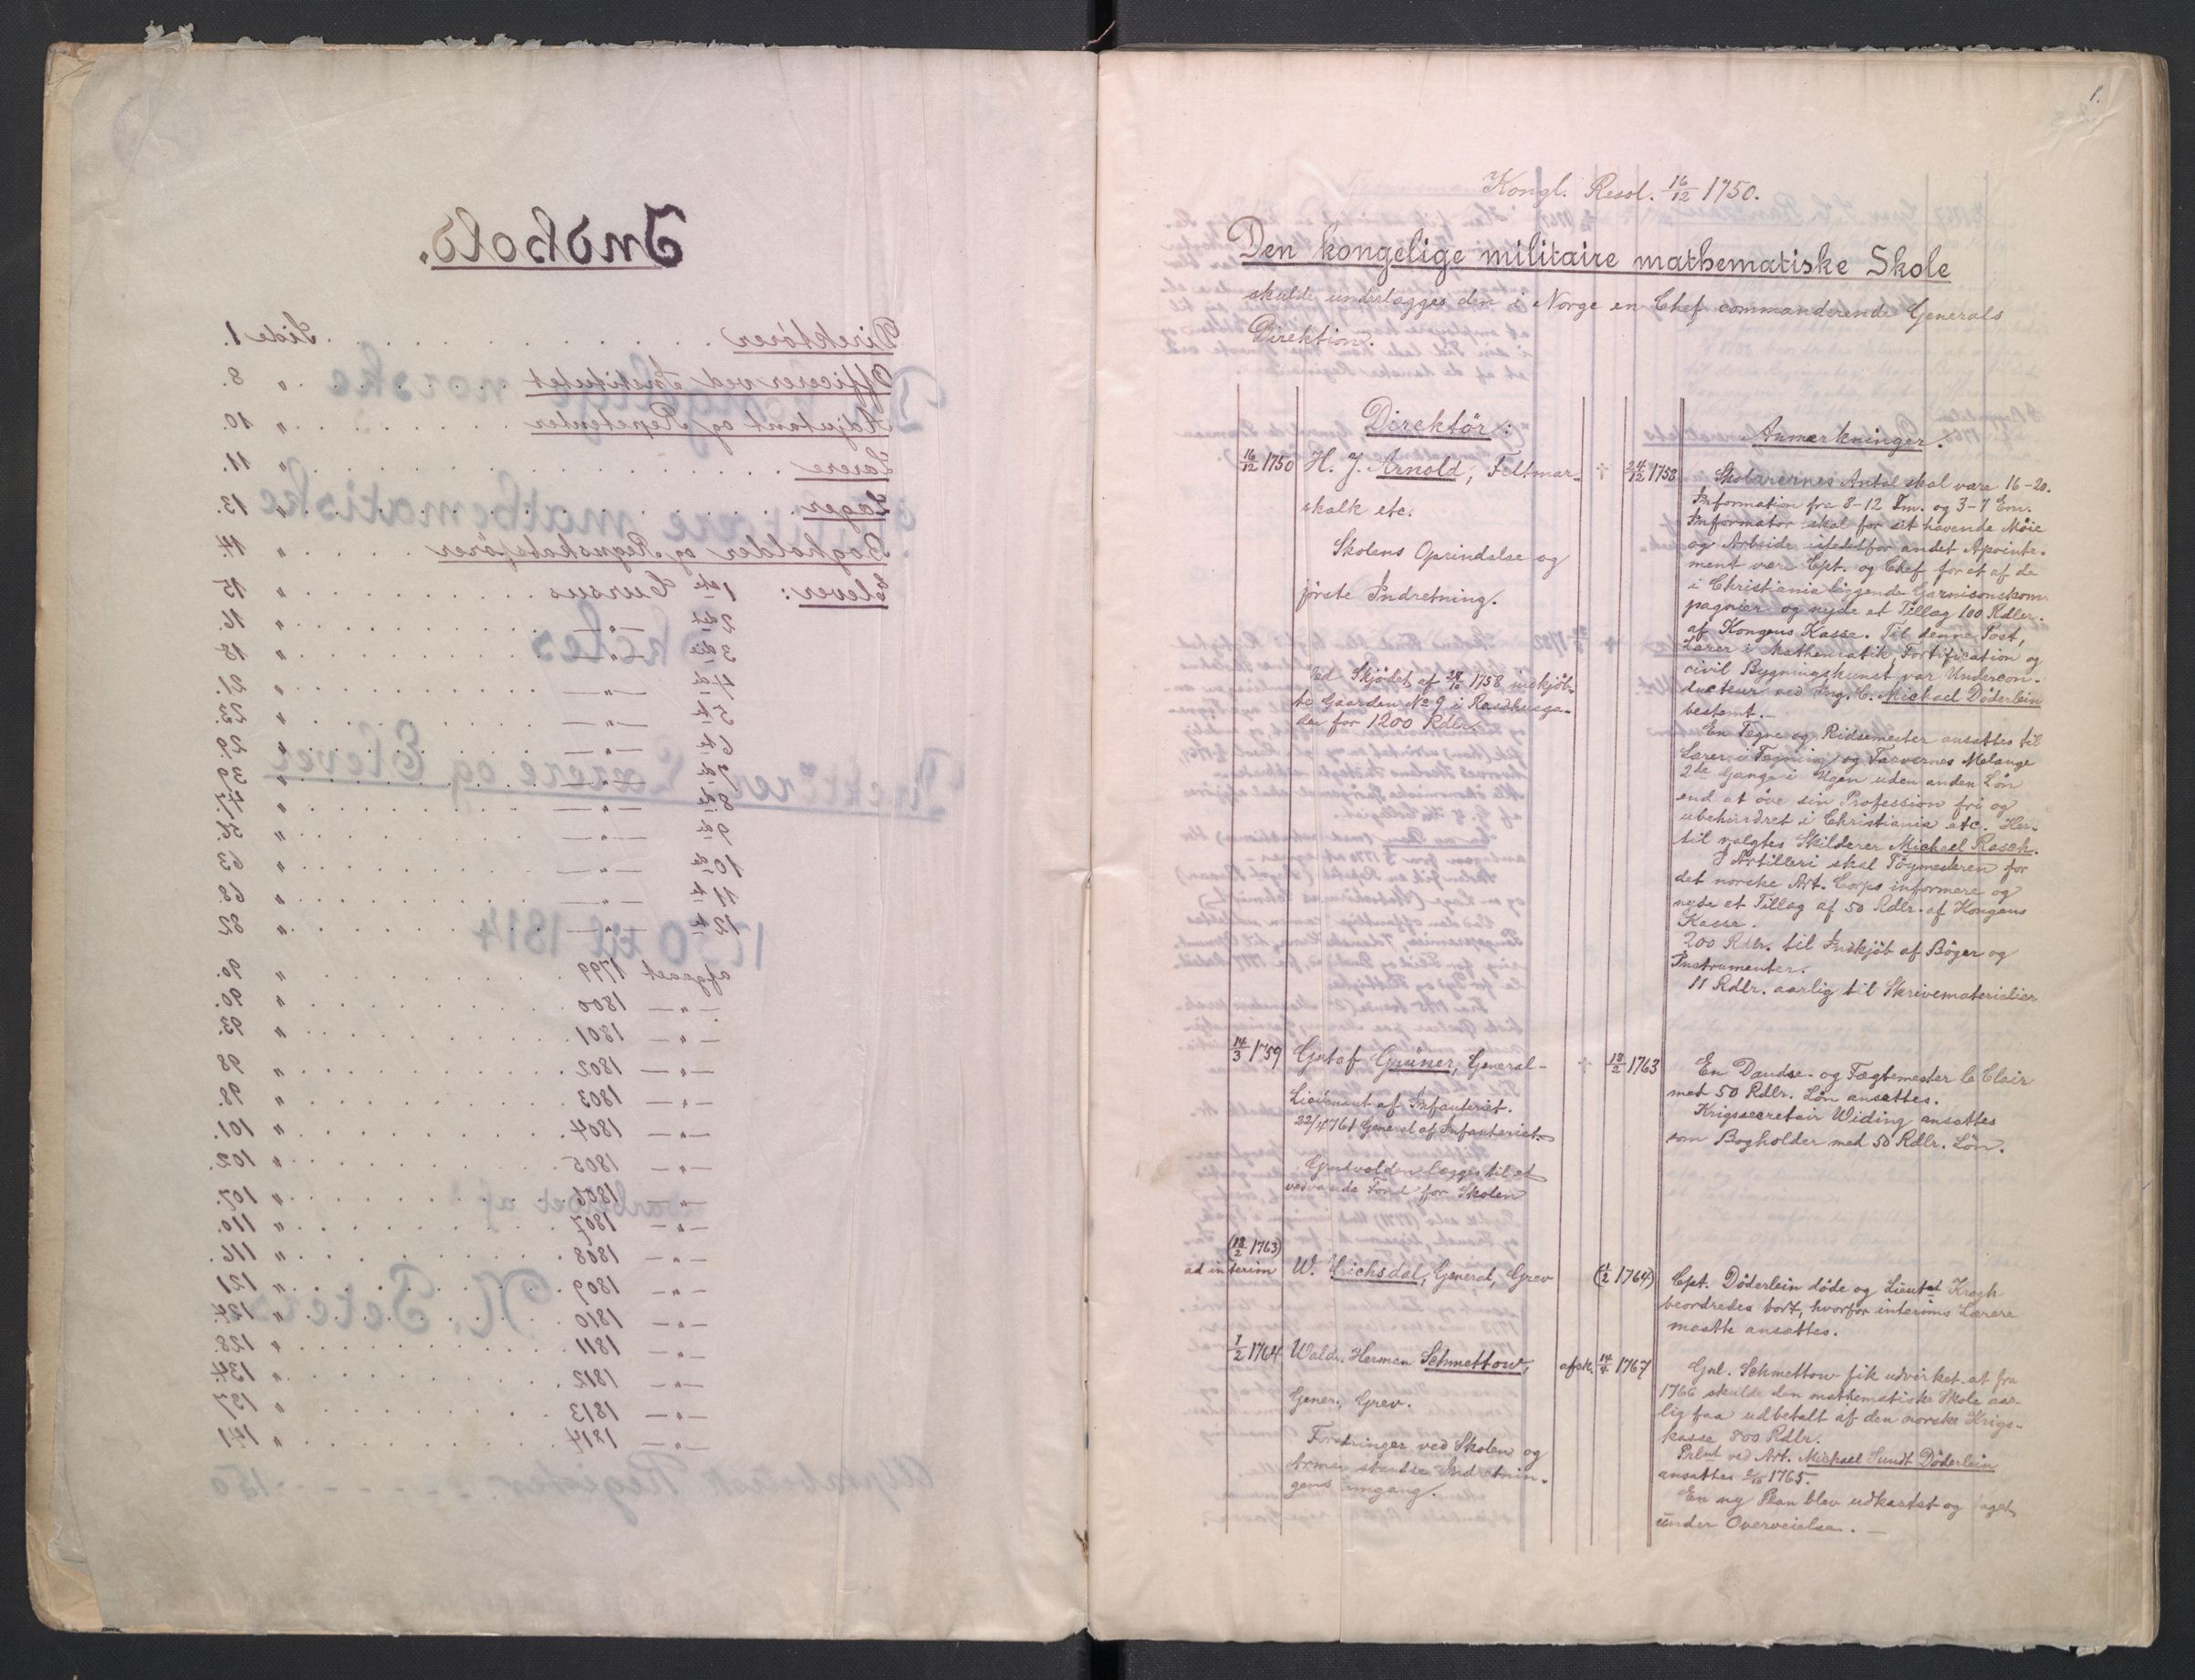 Indhold.
Direktører . . . . . . . . . . Side 1.
Officerer ved Institutet . . . . " 8.
Adjutant og Repetenter . . . . " 10.
Lærere . . . . . . . . . . " 11.
Læger . . . . . . . . . . " 13.
Bogholder og Regnskabsfører . . . . " 14.
Elever: 1ste Cursus . . . . . . " 15
2det —"— . . . . . . " 16.
3die —"— . . . . . . " 18
4de —"— . . . . . . " 21.
5te —"— . . . . . . " 23.
6te —"— . . . . . . " 29.
7de —"— . . . . . . " 39.
8de —"— . . . . . . " 47.
9de —"— . . . . . . " 56.
10de —"— . . . . . . " 63
11te —"— . . . . . . " 68.
12te —"— . . . . . . " 82
afgaaet 1799 . . . . . . " 90.
—"— 1800 . . . . . . " 90.
—"— 1801 . . . . . . " 93.
—"— 1802 . . . . . . " 98
—"— 1803 . . . . . . " 98.
—"— 1804 . . . . . . " 101.
—"— 1805 . . . . . . " 102.
—"— 1806 . . . . . . " 107.
—"— 1807 . . . . . . " 110.
—"— 1808 . . . . . . " 116.
—"— 1809 . . . . . . " 121
—"— 1810 . . . . . . " 124.
—"— 1811 . . . . . . " 128.
—"— 1812 . . . . . . " 134.
—"— 1813 . . . . . . " 137
—"— 1814 . . . . . . " 141
Alphabetisk Register . . . . 150
1.
Kongl. Resol. 16/12 1750.
Den kongelige militaire mathematiske Skole
skulde underlægges den i Norge en Chef commanderende Generals
Direktion.
Direktör:
16/12 1750 H. J. Arnold, Feltmar- † 24/12 1758
skalk etc.
Skolens Oprindelse og
förste Indretning.
Ved Skjödet af 1758 indkjöb-
te Gaarden No 9 i Raadhusga-
den for 1200 Rdlr.
14/3 1759 Gustaf Grüner, General- † 18/2 1763
Lieutenant af Infanteriet.
22/4 1761 General af Infanteriet.
Grundvolden lægges til et
vedvarende Fond for Skolen
(18/2 1763)
ad interim W. Urichsdal, General, Grev (1/2 1764)
1/2 1764 Wald. Herman Schmettow, afsk. 14/4 1767
Gener., Grev.
Forandringer ved Skolen og
Indretnin-
gens
Anmærkninger.
Skolarernes Antal skal være 16-20.
Information fra 8-12 Fm. og 3-7 Em.
Informator skal for sit havende Möie
og Arbeide istedetfor andet Apointe-
ment være Cpt. og Chef for et af de
i Christiania liggende Garnisonskom-
pagnier og nyde et Tillæg 100 Rdler.
af Kongens Kasse. Til denne Post,
Lærer i Mathematik, Fortification og
civil Bygningskunst var Undercon-
ducteur ved Ing. C. Michael Döderlein
bestemt.—
En Tegne og Ridsemester ansattes til
Lærer i Tegning og Farvernes Melange
2de Gange i Ugen uden anden Lön
end at öve sin Profession fri og
ubehindret i Christiania etc. Her-
til valgtes Skilderer Michael Rasch.
I Artilleri skal Töymesteren for
det norske Art. Corps informere og
nyde et Tillæg af 50 Rdlr. af Kongens
Kasse.
200 Rdlr. til Indkjöb af Böger og
Instrumenter.
11 Rdlr. aarlig til Skrivematerialier
En Dandse- og Fægtemester le Clair
med 50 Rdlr. Lön ansattes.
Krigssecretair Widing ansattes
som Bogholder med 50 Rdlr. Lön.
Cpt. Döderlein döde og Lieutnt Krogh
beordredes bort, hvorfor interims Lærere
maatte ansættes.
Gnl. Schmettow fik udvirket at fra
1766 skulde den mathematiske Skole aar-
lig faa udbetalt af den norske Krigs-
kasse 700 Rdlr.
Prlnt ved Art. Michael Sundt Döderlein
ansattes 1765.
En ny Plan blev udkastet og taget
under Overveielse.—